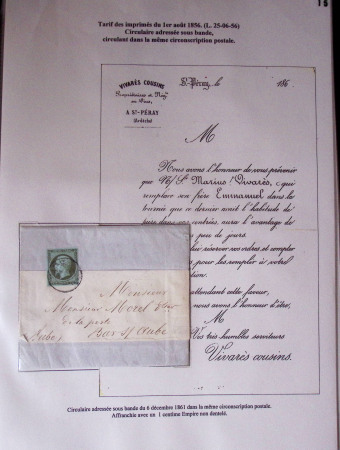 Tarif des imprimés du 1er août 1856. (L. 25-06-56)
Circulaire adressée sous bande,
circulant dans la même circonscription postale.
VIVARÈS COUSINS
Propriétaires et Nég.
en Vins,
A St-PÉRAY
(Ardèche)
St-Péray, le 186
M
Nous avons l'honneur de vous prévenir
que N/ Sr Marius Vivarès, qui
remplace son frère Emmanuel dans la
tournée que ce dernier avait l'habitude de
faire dans vos contrées, aura l'avantage de
peu de jours.
lui réserver vos ordres et compter
pour les remplir à votre
attendant cette faveur,
nous avons l'honneur d'être,
M
Vos très humbles serviteurs
Vivarès cousins.
Monsieur
Monsieur Morel
de la poste
Bar s/ Aube
(Aube)
Circulaire adressée sous bande du 6 décembre 1861 dans la même circonscription postale.
Affranchie avec un 1 centime Empire non dentelé.